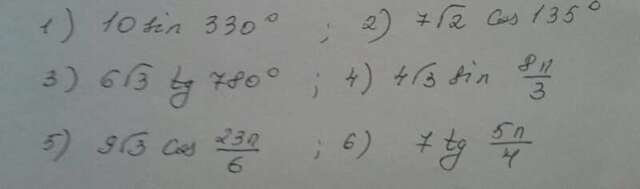 1) 10 sin 330° ; 2) 7√2 cos 135°
3) 6√3 tg 780° ; 4) 4√3 sin 8π/3
5) 9√3 cos 23π/6 ; 6) 7 tg 5π/4